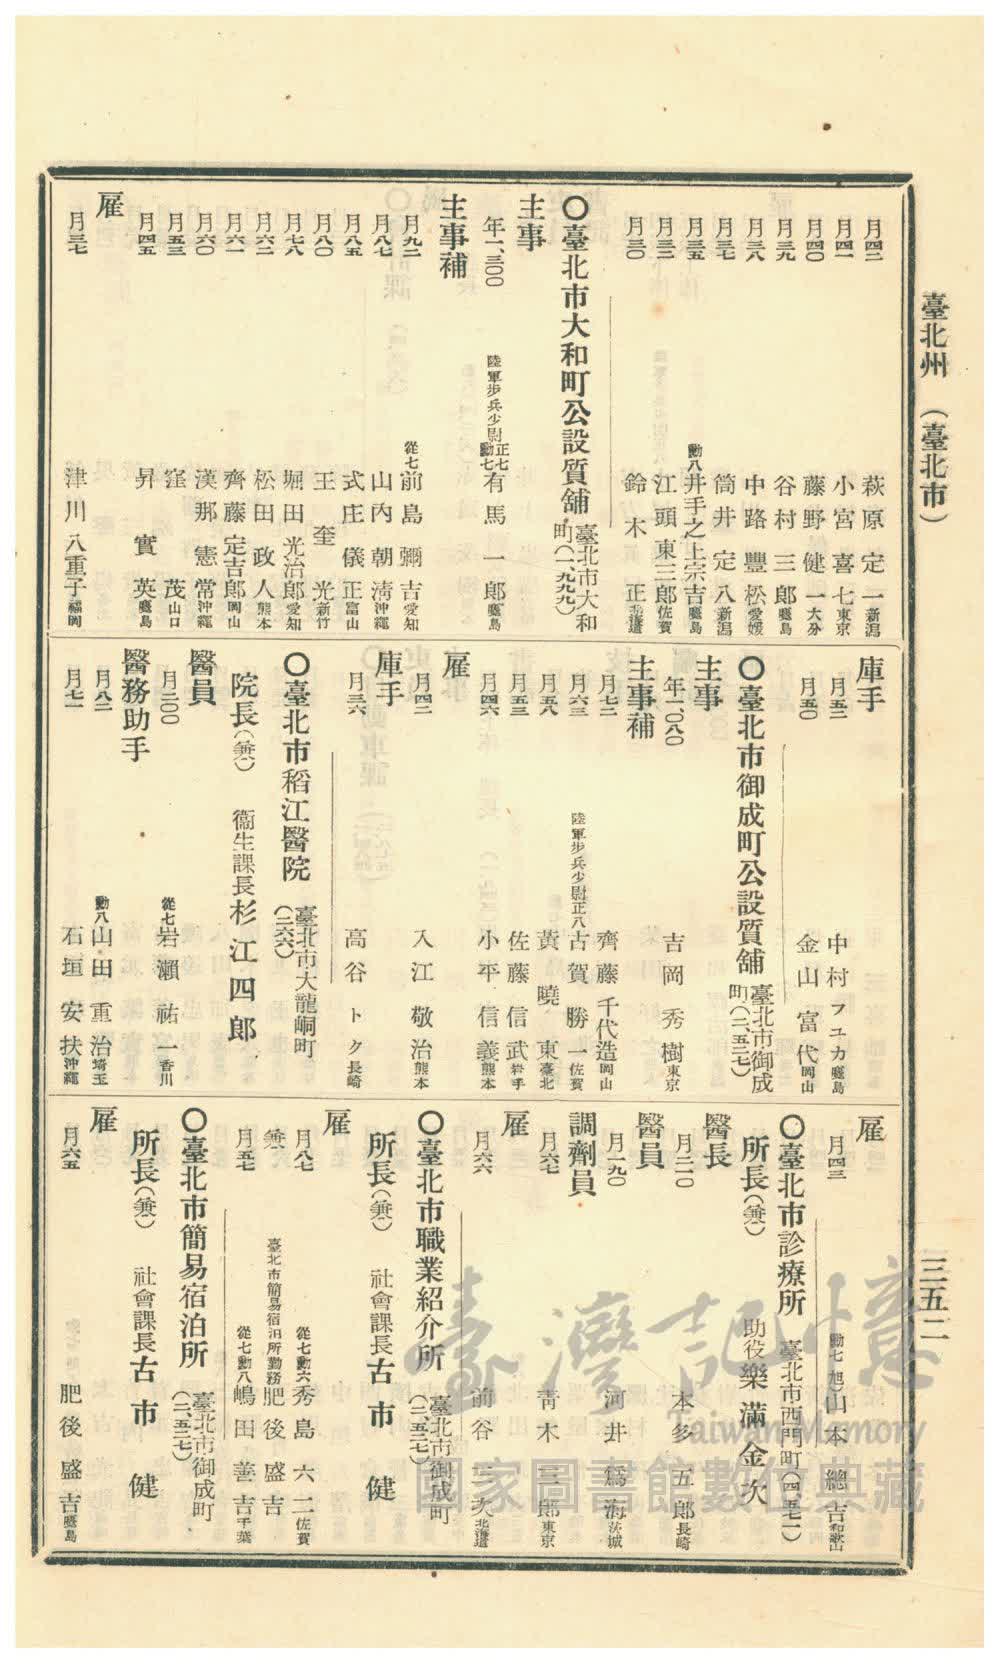 臺北州 (臺北市)
三五二
月四二 萩原定一 新潟
月四一 小宮喜七 東京
月四〇 藤野健一 大分
月三九 谷村三郎 鹿島
月三八 中路豐松 愛媛
月三七 筒井定八 新潟
月三五 勳八 井手之上宗吉 鹿島
月三三 江頭東三郎 佐賀
月三〇 鈴木正 北海道
〇臺北市大和町公設質舖 臺北市大和町(一、九九九)
主事
年一、三〇〇 陸軍步兵少尉 正七勳七 有馬一郎 鹿島
主事補
月九二 從七 前島彌吉 愛知
月八七 山內朝淸 沖繩
月八五 式庄儀正 富山
月八〇 王奎光 新竹
月七八 堀田光治郎 愛知
月六二 松田政人 熊本
月六一 齊藤定吉郎 岡山
月六〇 漢那憲常 沖繩
月五三 窪茂 山口
月四五 昇實英 鹿島
雇
月三七 津川八重子 福岡
庫手
月五二 中村フユカ 鹿島
月五〇 金山富代 岡山
〇臺北市御成町公設質舖 臺北市御成町(二、五二七)
主事
年一、〇八〇 吉岡秀樹 東京
主事補
月七二 齊藤千代造 岡山
月六三 陸軍步兵少尉 正八 古賀勝一 佐賀
月五八 黃曉東 臺北
月五三 佐藤信武 岩手
月四六 小平信義 熊本
雇
月四二 入江敬治 熊本
庫手
月三六 高谷トタ 長崎
〇臺北市稻江醫院 臺北市大龍峒町(二六六)
院長(兼) 衞生課長 杉江四郎
醫員
月二〇〇 從七 岩瀨祐一 香川
醫務助手
月八二 勳八 山田重治 埼玉
月七一 石垣安扶 沖繩
雇
月四三 勳七 旭 山本總吉 和歌山
〇臺北市診療所 臺北市西門町(四、五七一)
所長(兼) 助役 樂滿金次
醫長
月二二〇 本多五郎 長崎
醫員
月一九〇 河井爲海 茨城
調劑員
月六七 靑木三郎 東京
雇
月六六 前谷二次 北海道
〇臺北市職業紹介所 臺北市御成町(二、五二七)
所長(兼) 社會課長 古市健
雇
月八七 從七勳六 秀島六二 佐賀
(兼) 臺北市簡易宿泊所勤務 肥後盛吉
月五七 從七勳八 嶋田善吉 千葉
〇臺北市簡易宿泊所 臺北市御成町(二、五二七)
所長(兼) 社會課長 古市健
雇
月六五 肥後盛吉 鹿島
臺灣記憶
Taiwan Memory
國家圖書館數位典藏